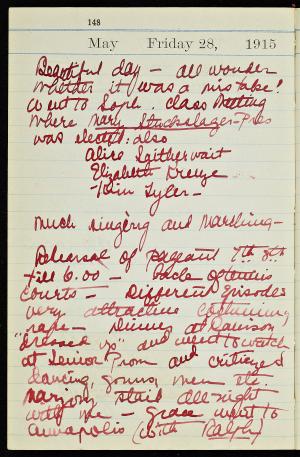 148
May Friday 28, 1915
Beautiful day - all wonder
whether it was a mistake!
Went to Soph. Class Meeting
where Mary Stucksleger - Pres
was elected: also
Alice Satherwait
Elizabeth
Tom Tyler -
Much singing and marching -
Rehearsal of pageant 7th 8th
till 6.00 - Back
courts - Different Episodes
very attractive costuming
rare - Dinner at Dawson
"dressed up" and went to watch
at Senior Prom and criticized
dancing, gowns, men etc.
Marjorie staid all-night
with me - Grace went to
Annapolis (with Ralph)